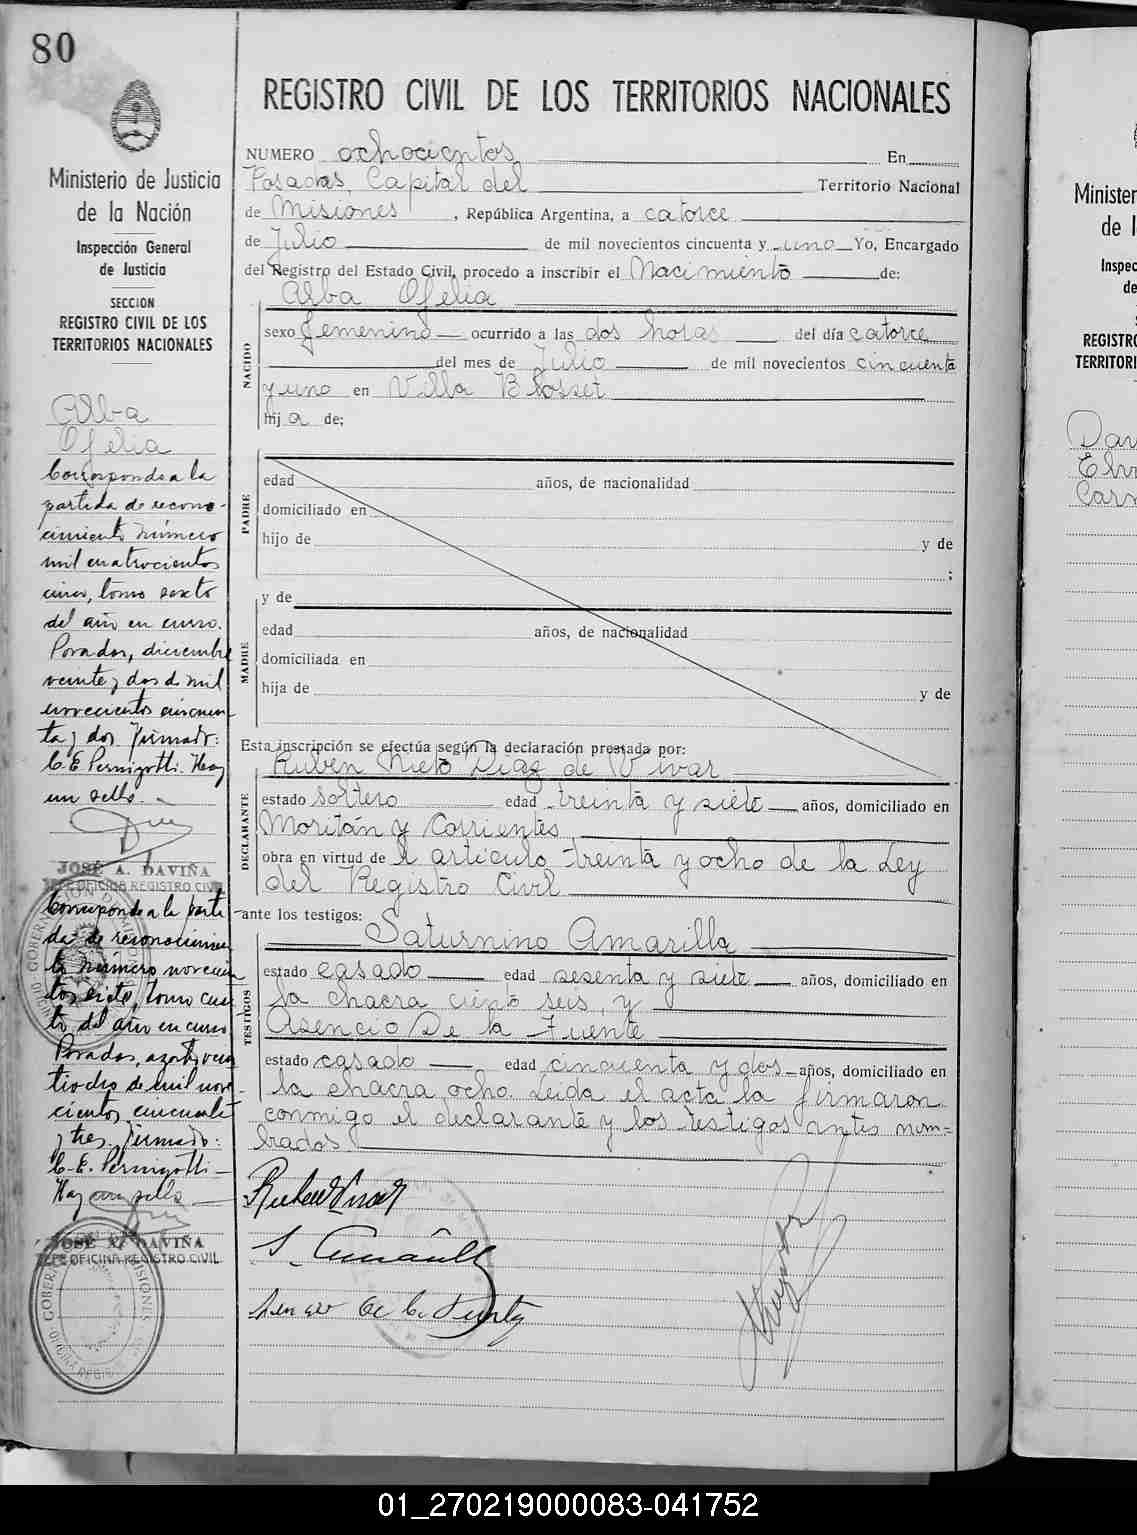 80
Ministerio de Justicia
de la Nación
Inspección General
de Justicia
SECCION
REGISTRO CIVIL DE LOS
TERRITORIOS NACIONALES
Alba
Ofelia
Corresponde a la
partida de recono-
cimiento número
mil cuatrocientos
cinco, tomo sexto
del año en curso.
Posadas, diciembre
veinte y dos de mil
novecientos cincuen
ta y dos. Firmado:
C. E. Pernigotti. Hay
un sello.
JOSÉ A. DAVIÑA
JEFE OFICINA REGISTRO CIVIL
Corresponde a la parti
da de reconocimien
to número novecien
tos siete, tomo cuar
to del año en curso
Posadas, agosto vein
tiocho de mil nove-
cientos cincuenta
y tres. Firmado:
C. E. Pernigotti
Hay un sello
JOSÉ A. DAVIÑA
JEFE OFICINA REGISTRO CIVIL
REGISTRO CIVIL DE LOS TERRITORIOS NACIONALES
NUMERO ochocientos En
Posadas, Capital del Territorio Nacional
de Misiones, República Argentina, a catorce
de Julio de mil novecientos cincuenta y uno Yo, Encargado
del Registro del Estado Civil, procedo a inscribir el Nacimiento de:
Alba Ofelia
NACIDO
sexo femenino ocurrido a las dos horas del día catorce
del mes de Julio de mil novecientos cincuenta
y uno en Villa Blosset
hija de:
PADRE
edad años, de nacionalidad
domiciliado en
hijo de y de
;
MADRE
y de
edad años, de nacionalidad
domiciliada en
hija de y de
Esta inscripción se efectúa según la declaración prestada por:
Rubén Nieto Diaz de Vivar
DECLARANTE
estado soltero edad treinta y siete años, domiciliado en
Moritán y Corrientes,
obra en virtud del articulo treinta y ocho de la Ley
del Registro Civil
ante los testigos:
Saturnino Amarilla
TESTIGOS
estado casado edad sesenta y siete años, domiciliado en
la chacra ciento seis, y
Asencio De la Fuente
estado casado edad cincuenta y dos años, domiciliado en
la chacra ocho. Leida el acta la firmaron
conmigo el declarante y los testigos antes nom=
brados.
S. Amarilla
Ministe
de l
Inspec
de
REGISTR
TERRITOR
01_270219000083-041752